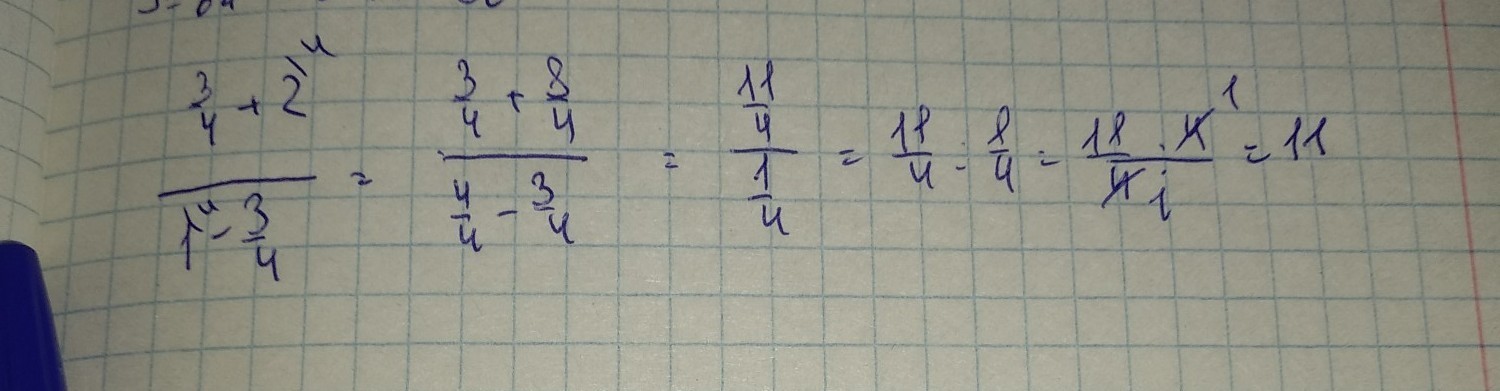 (3/4 + 2^4)/(1^4 - 3/4) = (3/4 + 8/4)/(4/4 - 3/4) = (11/4)/(1/4) = 11/4 : 1/4 = (11 · 4 1)/(4 1) = 11